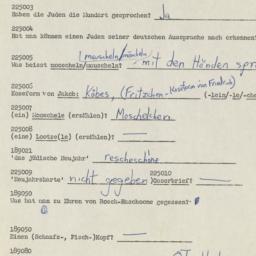 225003
Haben die Juden die Mundart gesprochen? Ja
225004
Hat man können einen Juden seiner deutschen Aussprache nach erkennen?
225005 (mauscheln/
Was heisst mooscheln/mauscheln? mit den Händen spr
225006
Koseform von Jakob: Köbes, (Fritzchen - Koseform von Friedrich) (-lein/-le/-che
225007
(ein) Mooschele (erzählen)? Moschelchen
225008
(eine) Lootze(le) (erzählen)?
189021
'das jüdische Neujahr' rescheschöne
225009 225010
'Neujahrskarte' nicht gegeben Kooserbrief?
189050
Was hat man zu Ehren von Rosch-Haschoone gegessen?
189050
Einen (Schaafs-, Fisch-)Kopf?
189080